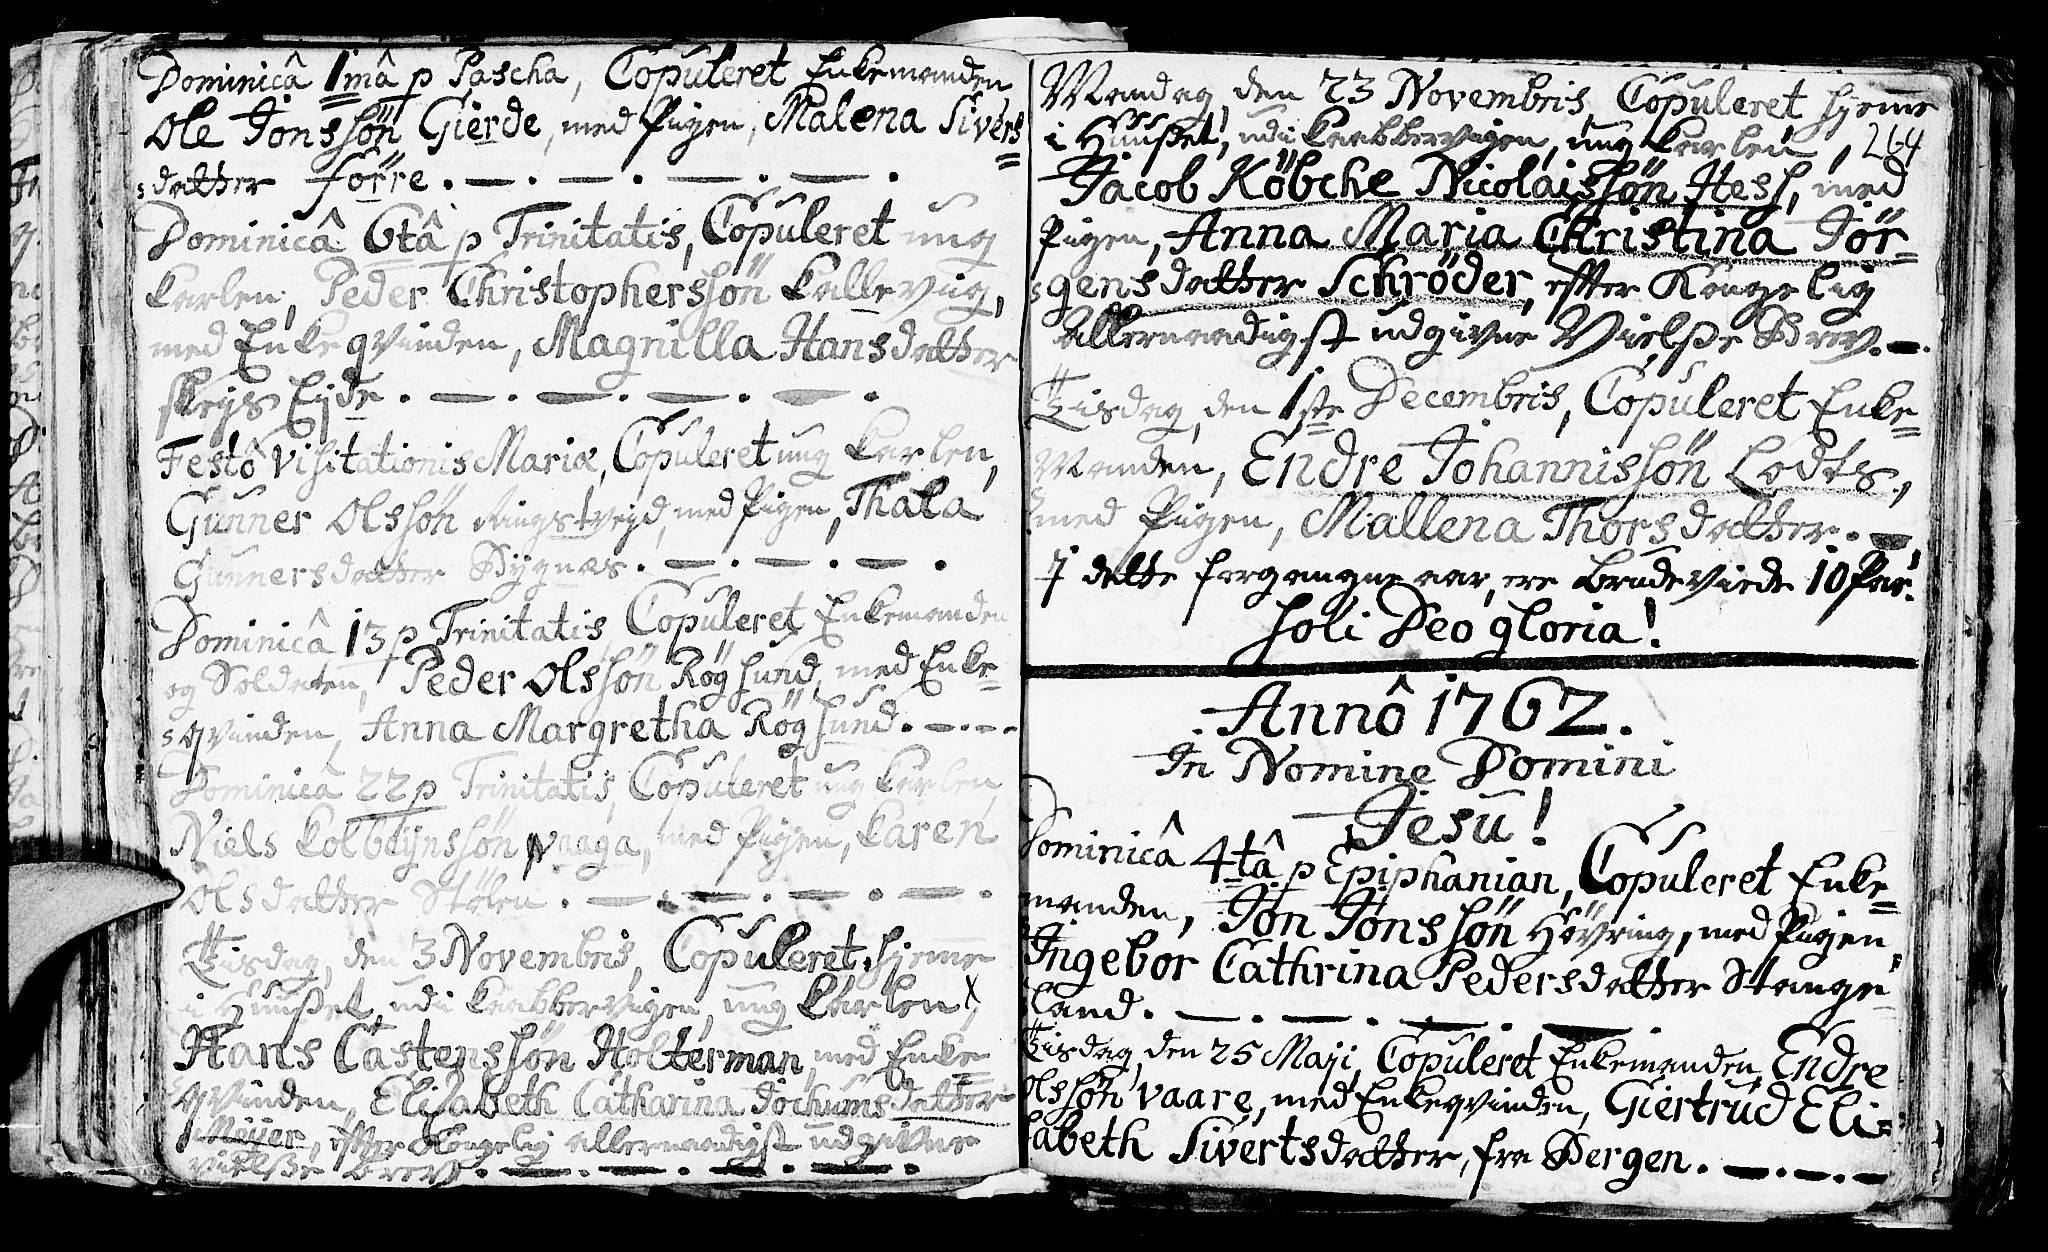 Dominicâ 1mâ p Pascha, Copuleret Enkemanden
Ole Jonssön Gierde, med Pigen, Malena Sivers=
=datter Förre. — . — . — . — .
Dominicâ 6tâ p Trinitatis, Copuleret ung
karlen, Peder Christopherssön Kallevig,
med Enkeqvinden, Magnilla Hansdatter
Skeys Eyde. — . — . — . — .
Festô Visitationis Mariæ, Copuleret ung karlen,
Gunner Olssön Ringstveyd, med Pigen, Thala
Gunnersdatter Bygnæs. — . — . — .
Dominicâ 13 p Trinitatis Copuleret Enkemanden
og Soldaten, Peder Olssön Rögsund, med Enke=
=qvinden, Anna Margretha Rögsund. — . — .
Dominicâ 22 p Trinitatis, Copuleret ung karlen,
Niels Kolbeynssön Vaaga, med Pigen, Karen
Olsdatter Stölen. — . — . — . — .
Tisdag, den 3 Novembris, Copuleret hjemme
i Huuset, udi Kaabbervigen, ung karlen,
Hans Castenssön Holterman, med Enke=
=qvinden, Elisabeth Catharina Jochumsdatter
Meyer, efter Kongelig allernaadigst udgivne
Vielsse Brev. — . — . — . — .
Mandag, den 23 Novembris, Copuleret hjemme
i Huuset, udi Kaabbervigen, ung karlen, 264
Jacob Köbche Nicolaissön Hess, med
Pigen, Anna Maria Christina Jör=
=gensdatter Schröder, efter Kongelig
allernaadigst udgivne Vielsse Brev. — .
Tisdag, den 1ste Decembris, Copuleret Enke=
Manden, Endre Johannissön Lodts,
med Pigen, Mallena Thorsdatter. —
I dette forgangne aar, ere brudeviede 10 Par.
Soli Deo gloria!
Annô 1762.
In Nomine Domini
Jesu!
Dominicâ 4tâ p Epiphanian, Copuleret Enke=
manden, Jon Jonssön Hövring, med Pigen,
Ingebor Cathrina Pedersdatter Stange=
land. — . — . — . — .
Tisdag, den 25 Maji, Copuleret Enkemanden, Endre
Olssön Vaare, med Enkeqvinden, Giertrud Eli=
sabeth Sivertsdatter, fra Bergen. — . — . —